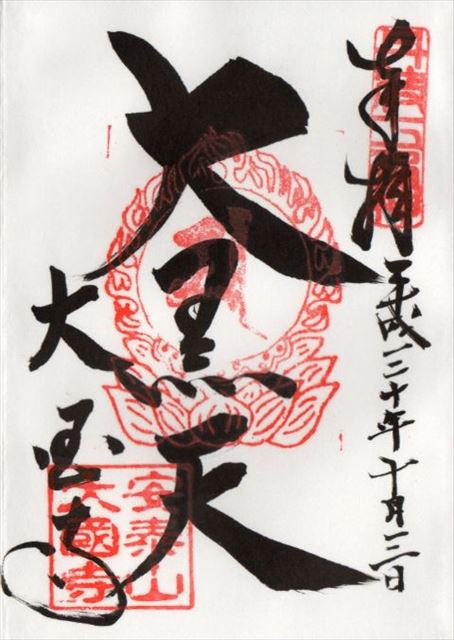 奉拝
平成三十年十月三日
大黒天
大国寺
安泰山
大國寺